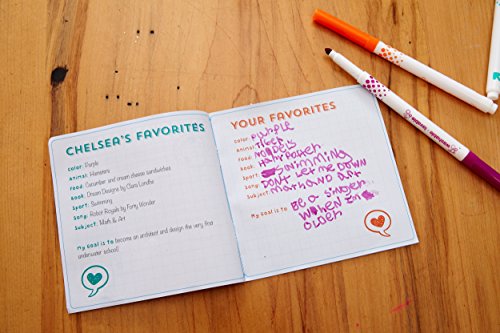 CHELSEA'S FAVORITES
Color: Purple
Animal: Hamsters
Food: Cucumber and cream cheese sandwiches
Book: Dream Designs by Clara Londhe
Sport: Swimming
Song: Robot Royals by Forty Wonder
Subject: Math & Art
My Goal is to become an architect and design the very first
underwater school!
YOUR FAVORITES
Color: PURPLE
Animal: TIGER
Food: NOODELS
Book: HARRY POTTER
Sport: SWIMMING
Song: DONT LET ME DOWN
Subject: MATH AND ART
My Goal is to: BE A SINGER
WHEN Im
OLDER